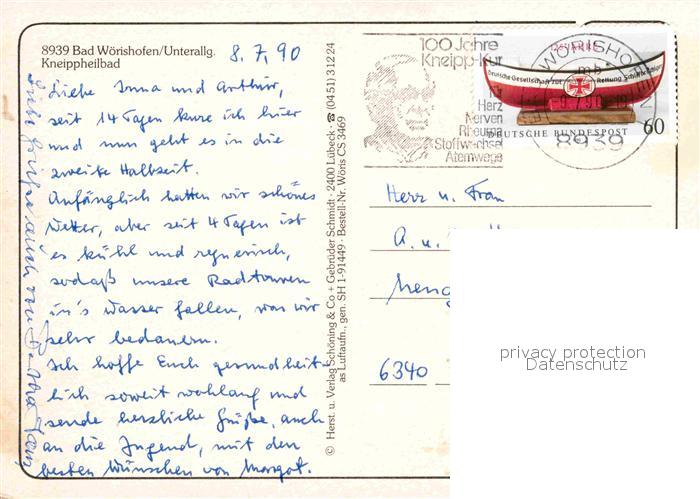 8939 Bad Wörishofen/Unterallg.
Kneippheilbad
8.7.90
Liebe Irma und Arthur,
seit 14 Tagen kure ich hier
und nun geht es in die
zweite Halbzeit.
Anfänglich hatten wir schönes
Wetter, aber seit 4 Tagen ist
es kühl und regnerisch,
sodaß unsere Radtouren
in's Wasser fallen, was wir
sehr bedauern.
Ich hoffe Euch gesundheit-
lich soweit wohlauf und
sende herzliche Grüße, auch
an die Jugend, mit den
besten Wünschen von Margot.
Liebe Grüße auch von
© Herst. u. Verlag Schöning & Co + Gebrüder Schmidt · 2400 Lübeck · ☎ (0451) 31224
als Luftaufn., gen. SH 1-91449 · Bestell-Nr. Wöris CS 3469
100 Jahre
Kneipp-Kur
Herz
Nerven
Rheuma
Stoffwechsel
Atemwege
WÖRISHOFEN
mb
8939
Deutsche Gesellschaft zur Rettung Schiffbrüchiger
DEUTSCHE BUNDESPOST
60
Herr u. Frau
A. u.
6340
privacy protection
Datenschutz